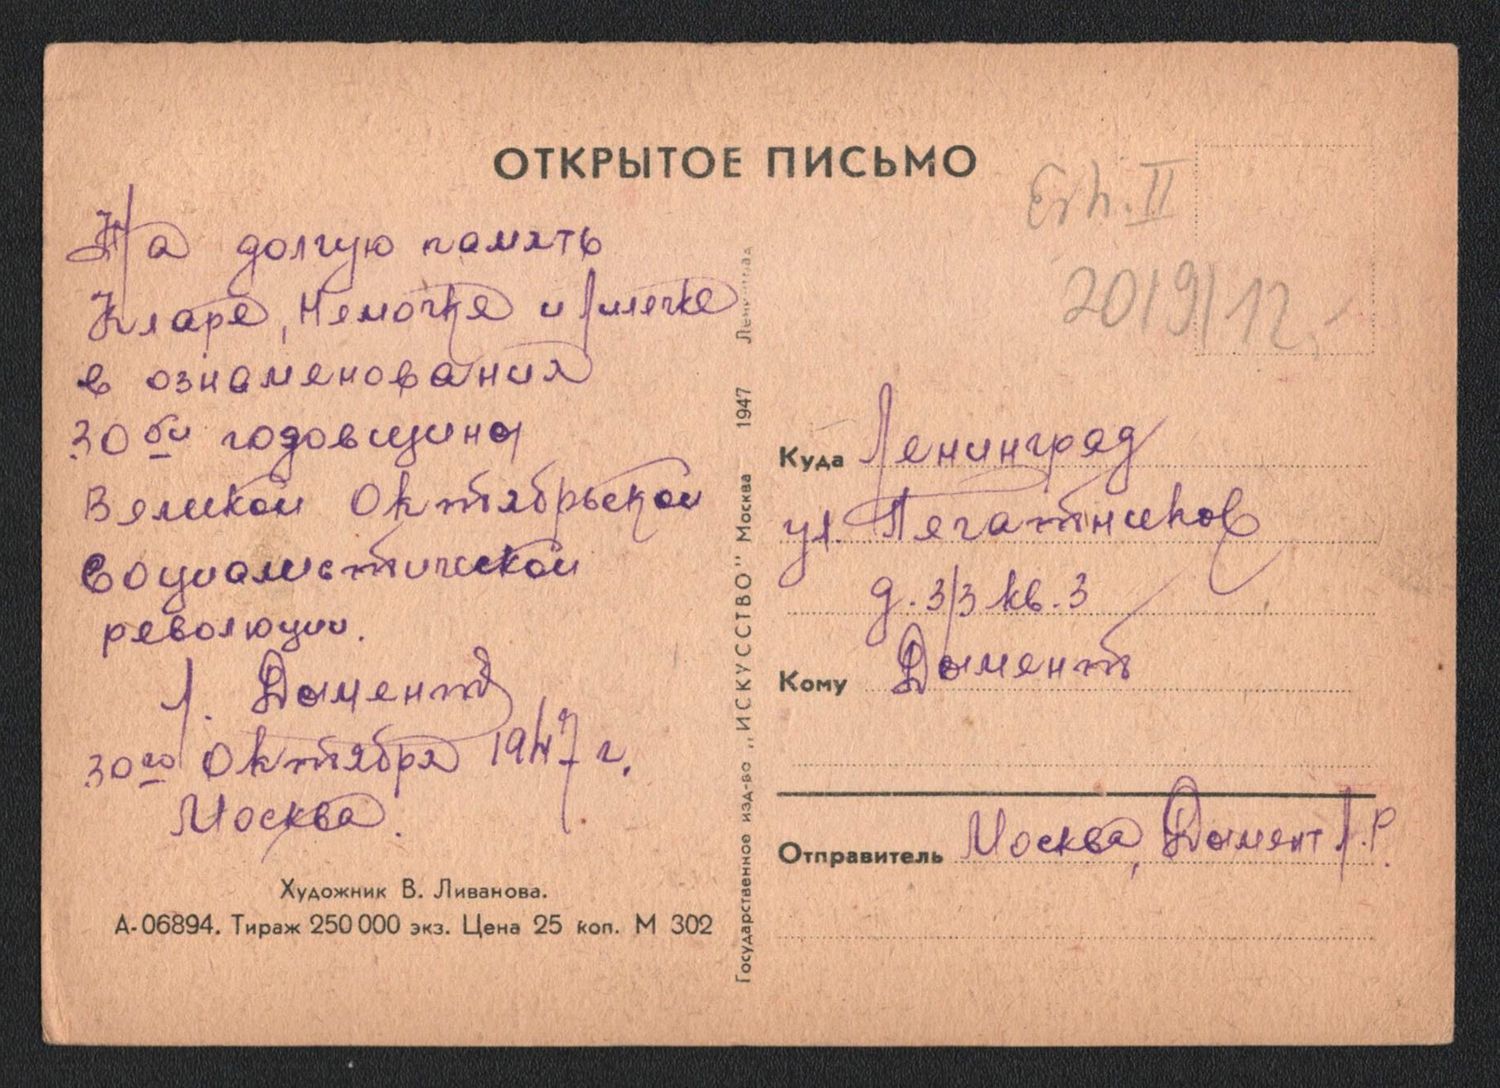 ОТКРЫТОЕ ПИСЬМО
Erh. II
2019/12,-
На долгую память
Кларе, Немочке и Лилечке
в ознаменования
30ой годовщины
Великой Октябрьской
Социалистической
революции.
Л. Дымент
30го Октября 1947 г.
Москва.
Художник В. Ливанова.
А-06894. Тираж 250 000 экз. Цена 25 коп. М 302
Государственное изд-во „ИСКУССТВО" Москва 1947 Ленинград
Куда Ленинград
ул. Печатников
д. 3/3 кв. 3
Кому Дымент
Отправитель Москва, Дымент Л.Р.